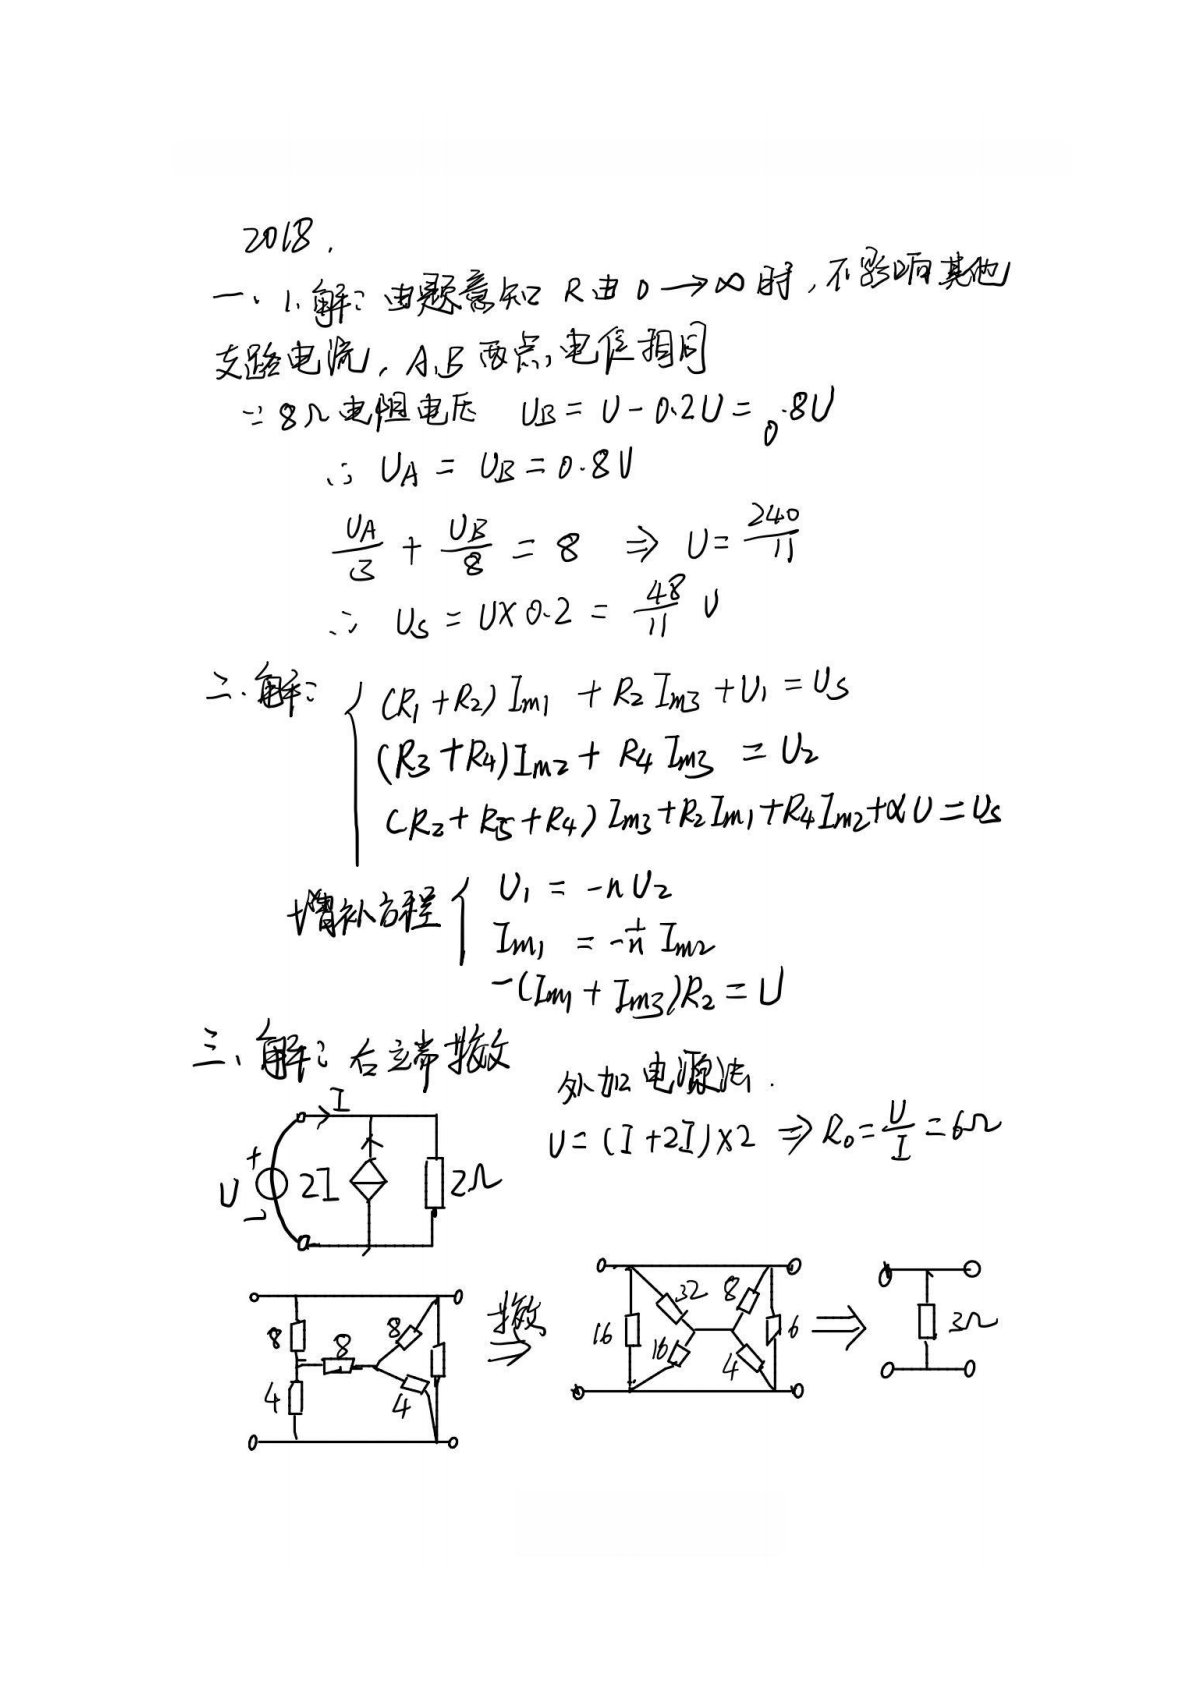 2018.
一、1.解：由题意知 R由0→∞时，不影响其他
支路电流，A、B两点电位相同
∵8Ω电阻电压 UB = U-0.2U = 0.8U
∴ UA = UB = 0.8U
UA/3 + UB/8 = 8 ⇒ U = 240/11
∴ Us = U×0.2 = 48/11 V
二.解：
(R1+R2)Im1 + R2Im3 + U1 = Us
(R3+R4)Im2 + R4Im3 = U2
(R2+R5+R4)Im3+R2Im1+R4Im2+αU=Us
增补方程
U1 = -nU2
Im1 = -1/n Im2
-(Im1+Im3)R2 = U
三、解：右端等效
外加电源法.
U=(I+2I)×2 ⇒ R0=U/I=6Ω
I
+ U - 2I 2Ω
8 8 8 4 4
等效 ⇒
16 32 16 8 4 6 ⇒ 3Ω